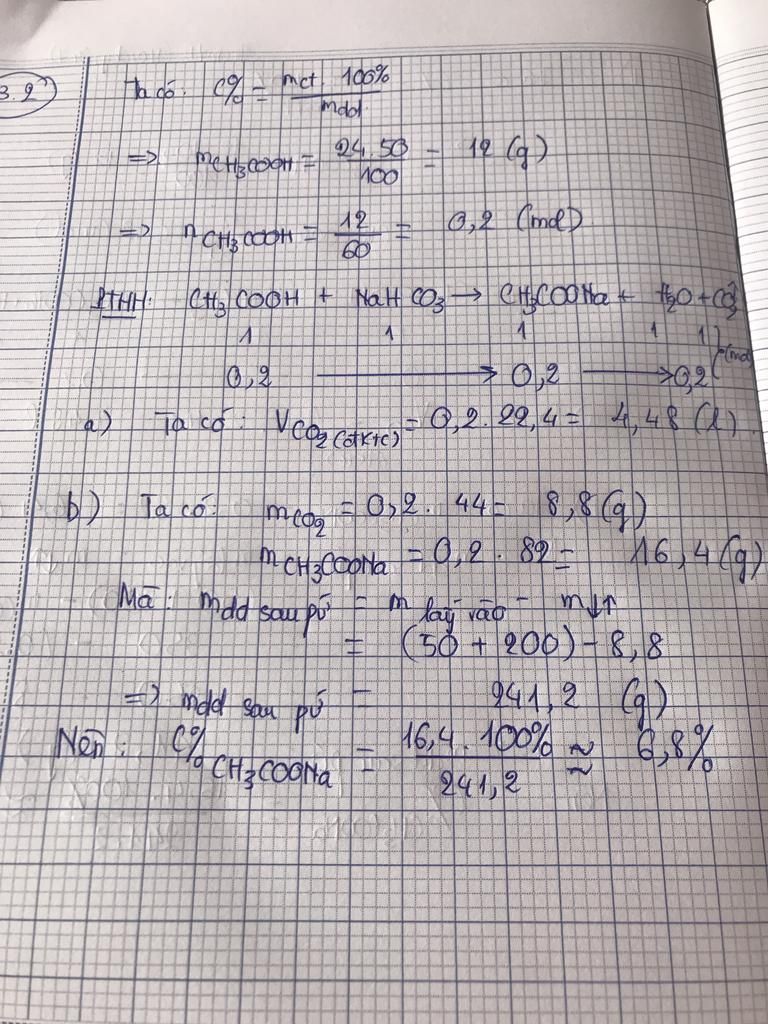 3.2
Ta có: C% = mct . 100% / mdd
=> mCH₃COOH = 24.50 / 100 = 12 (g)
=> nCH₃COOH = 12 / 60 = 0,2 (mol)
PTHH: CH₃COOH + NaHCO₃ → CH₃COONa + H₂O + CO₂↑
1 1 1 1 1
0,2 → 0,2 → 0,2 (mol)
a) Ta có: VCO₂(đktc) = 0,2 . 22,4 = 4,48 (l)
b) Ta có: mCO₂ = 0,2 . 44 = 8,8 (g)
mCH₃COONa = 0,2 . 82 = 16,4 (g)
Mà: mdd sau pứ = m lấy vào - m↓↑
= (50 + 200) - 8,8
=> mdd sau pứ = 241,2 (g)
Nên: C% CH₃COONa = 16,4 . 100% / 241,2 ≈ 6,8%